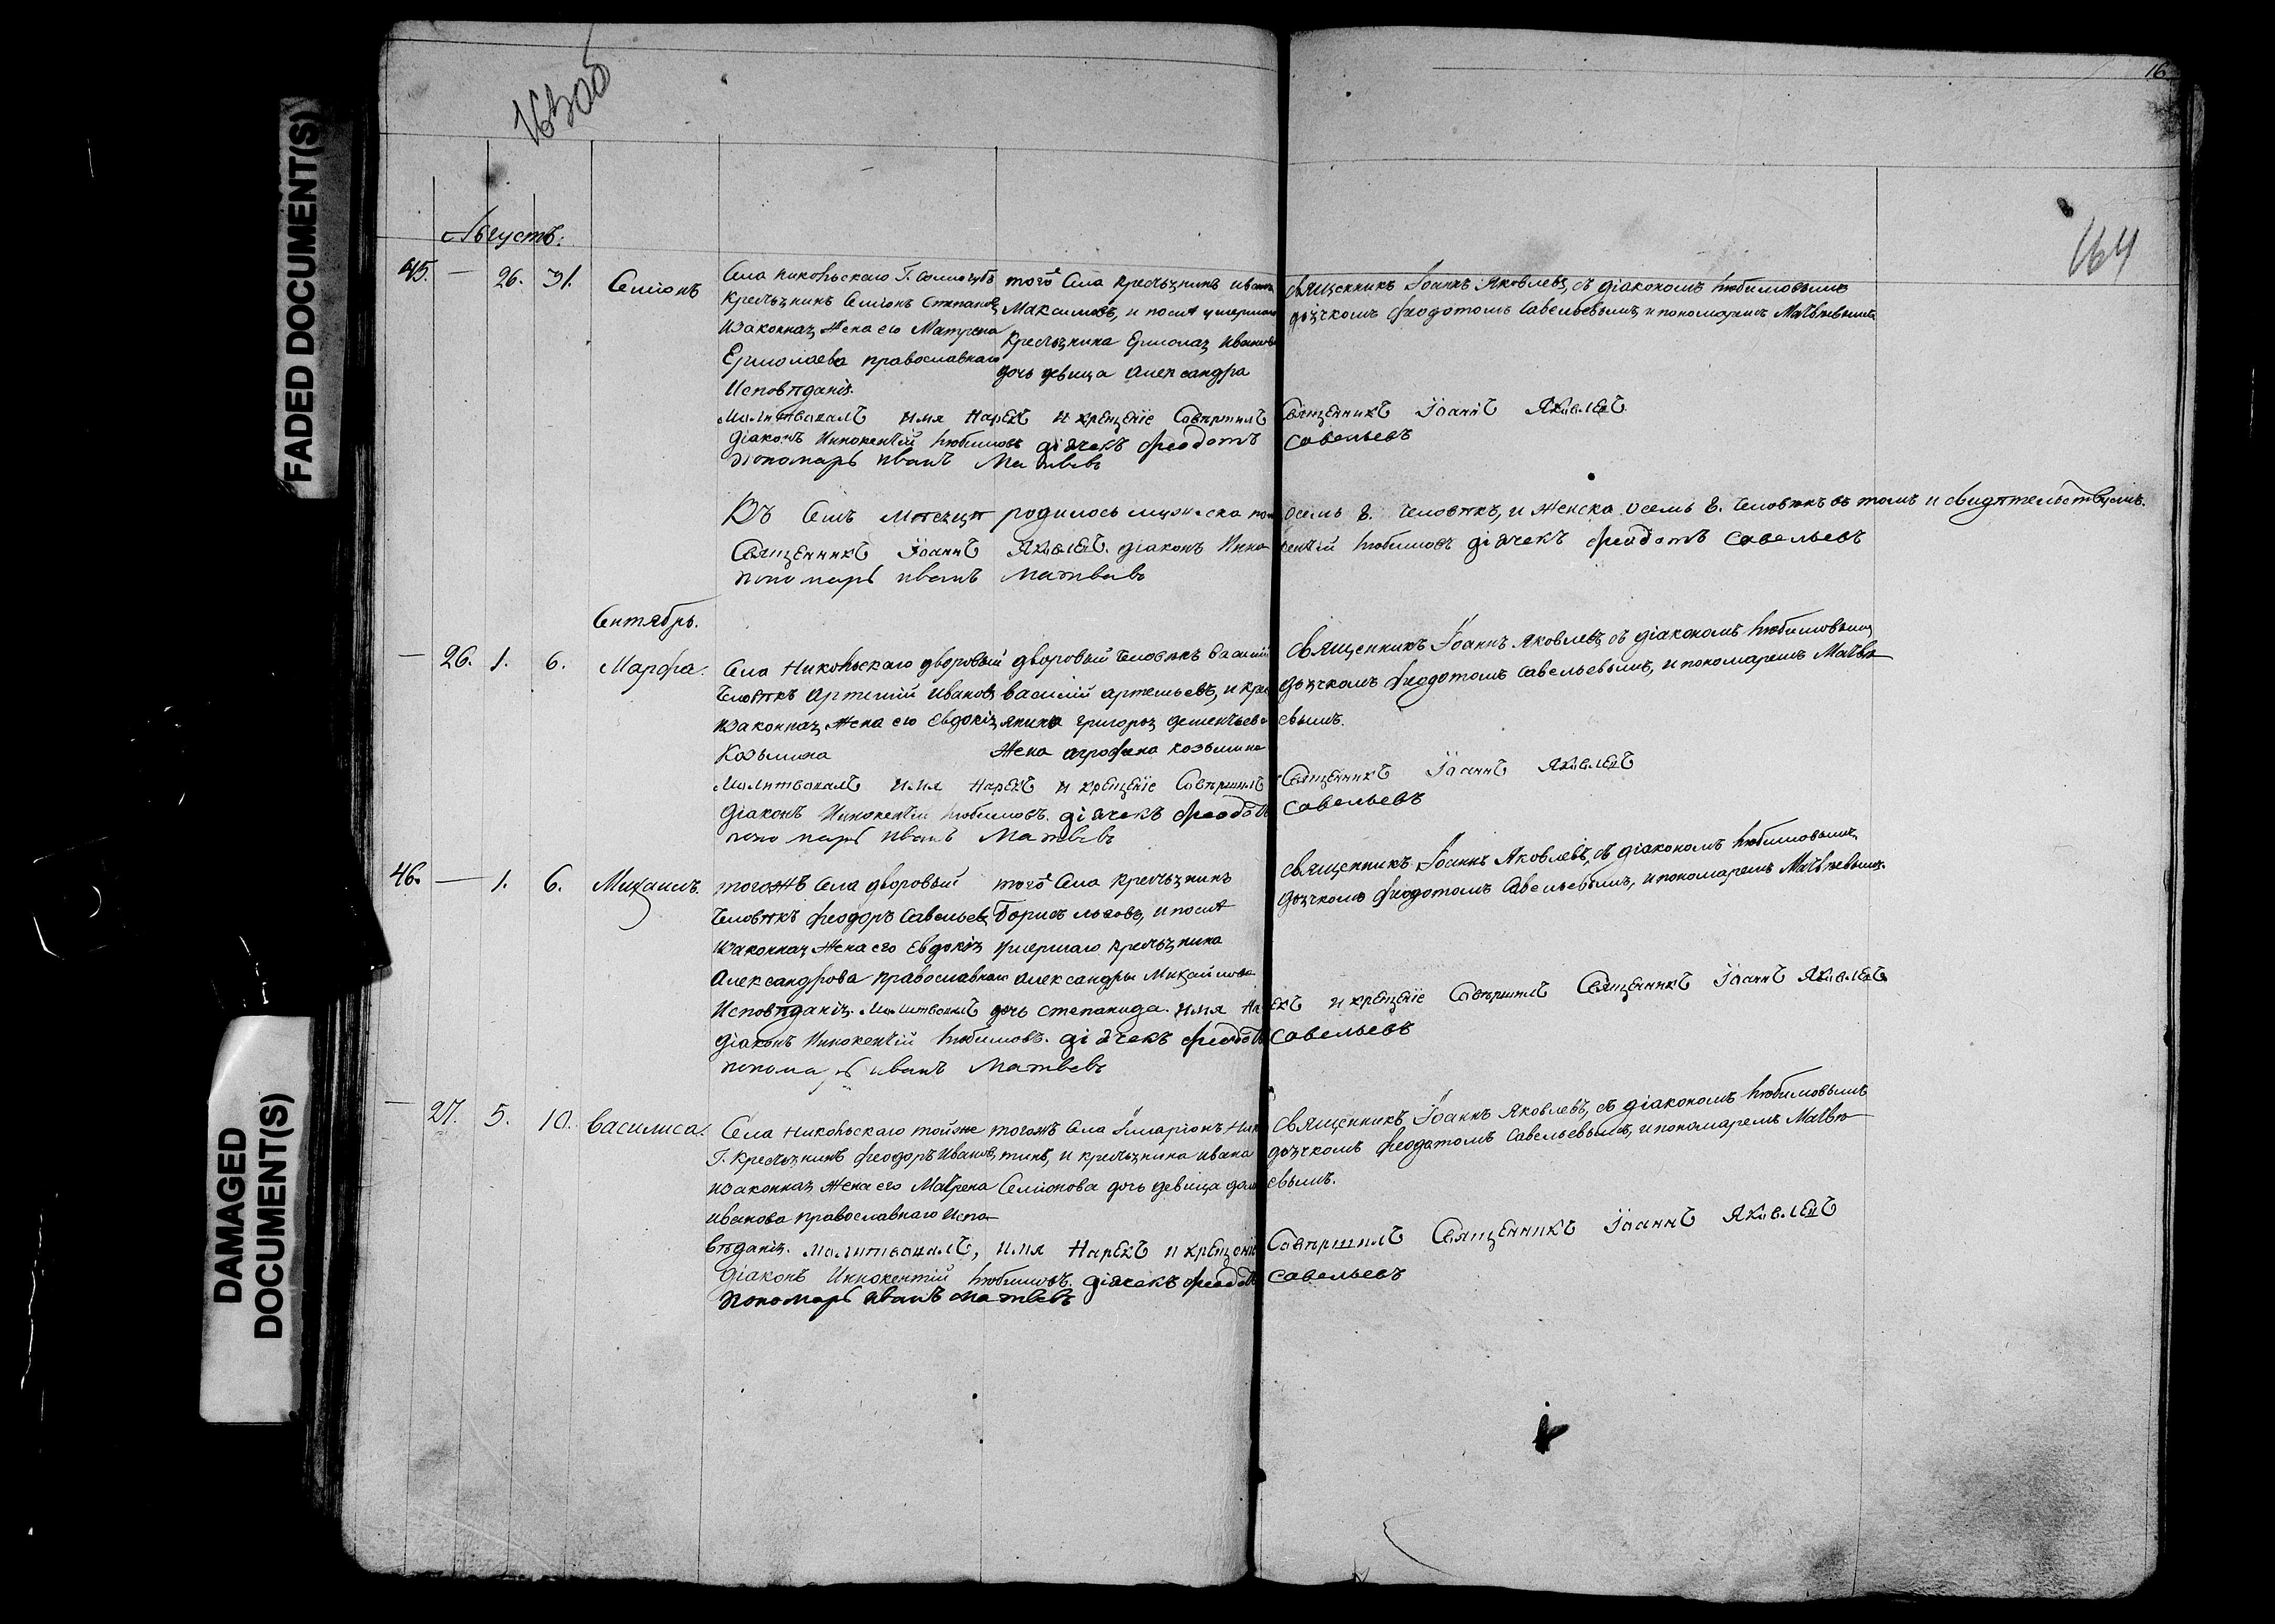 FADED DOCUMENT(S)
DAMAGED
DOCUMENT(S)
163об
16
164
Августъ:
45. — 26. 31. Семіонъ
Села Никольскаго Г. Сомогубъ
крестьянинъ Семіонъ Степановъ
изаконная жена его Матрена
Ермолаева православнаго
Исповѣданія.
того Села крестьянинъ иванъ
Максимовъ, и послѣ умершаго
крестьянина Ермолая иванова
дочь девица александра
священникъ Іоаннъ Яковлевъ, съ діакономъ Любимовымъ
дьячкомъ Феодотомъ Савельевымъ, и пономаремъ Матвѣевымъ
Молитвовалъ имя нарекъ и крещеніе Совершилъ Священникъ Іоаннъ Яковлевъ
діаконъ Иннокентій Любимовъ діячекъ Феодотъ Савельевъ
Пономарь иванъ Матвевъ
Въ Семъ Месяцѣ родилось мужеска пола осемь 8. человѣкъ, и женска осемь 8. человѣкъ въ томъ и свидѣтельствуемъ.
Священникъ Іоаннъ Яковлевъ. діаконъ Иннокентій Любимовъ діячекъ Феодотъ Савельевъ
пономарь иванъ Матвевъ
Сентябрь.
— 26. 1. 6. Марфа.
Села Никольскаго дворовый
человѣкъ артемій ивановъ
изаконная жена его Евдокія
Козьмина
дворовый человѣкъ василій
василій артемьевъ, и крестьянина григорія дементьева
жена агрофена козьмина
священникъ Іоаннъ Яковлевъ, съ діакономъ Любимовымъ
дьячкомъ Феодотомъ Савельевымъ, и пономаремъ Матвѣевымъ.
Молитвовалъ имя нарекъ и крещеніе Совершилъ Священникъ Іоаннъ Яковлевъ
діаконъ Иннокентій Любимовъ. діячекъ Феодотъ Савельевъ
пономарь иванъ Матвевъ
46. — 1. 6. Михаилъ.
тогожъ Села дворовый
человѣкъ Феодоръ Савельевъ
изаконная жена его Евдокія
Александрова православнаго
Исповѣданія.
того Села крестьянинъ
Борисъ львовъ, и послѣ
умершаго крестьянина
александры Михайлова
дочь степанида.
священникъ Іоаннъ Яковлевъ, съ діакономъ Любимовымъ
дьячкомъ Феодотомъ Савельевымъ, и пономаремъ Матвѣевымъ.
Молитвовалъ имя нарекъ и крещеніе Совершилъ Священникъ Іоаннъ Яковлевъ
діаконъ Иннокентій Любимовъ. діячекъ Феодотъ Савельевъ
пономарь иванъ Матвевъ
— 27. 5. 10. Василиса.
Села Никольскаго тойже
Г. крестьянинъ Феодоръ Ивановъ
изаконная жена его Матрена
иванова православнаго испо-
вѣданія.
тогожъ Села Іларіонъ
и крестьянина ивана
Семіонова дочь девица
священникъ Іоаннъ Яковлевъ, съ діакономъ Любимовымъ
дьячкомъ Феодотомъ Савельевымъ, и пономаремъ Матвѣевымъ.
молитвовалъ, имя нарекъ и крещеніе Совершилъ Священникъ Іоаннъ Яковлевъ
діаконъ Иннокентій Любимовъ. діячекъ Феодотъ Савельевъ
пономарь иванъ Матвевъ